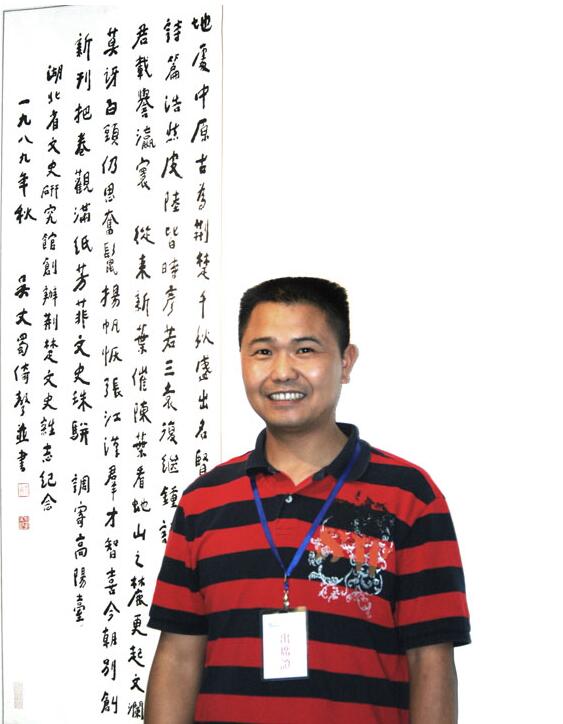 地處中原古為荊楚千秋盛出名賢
詩篇浩然皮陸皆時彥若三袁復繼鍾
君載譽瀛寰 從来新葉催陳葉看蛇山之麓更起文瀾
莫訝白頭仍思奮鬣揚帆恢張江漢羣才智喜今朝別創
新刊把卷觀滿紙芳菲文史珠駢 調寄高陽臺
湖北省文史研究館創辦荊楚文史雜志紀念
一九八九年秋 吳丈蜀倚聲並書
出席證